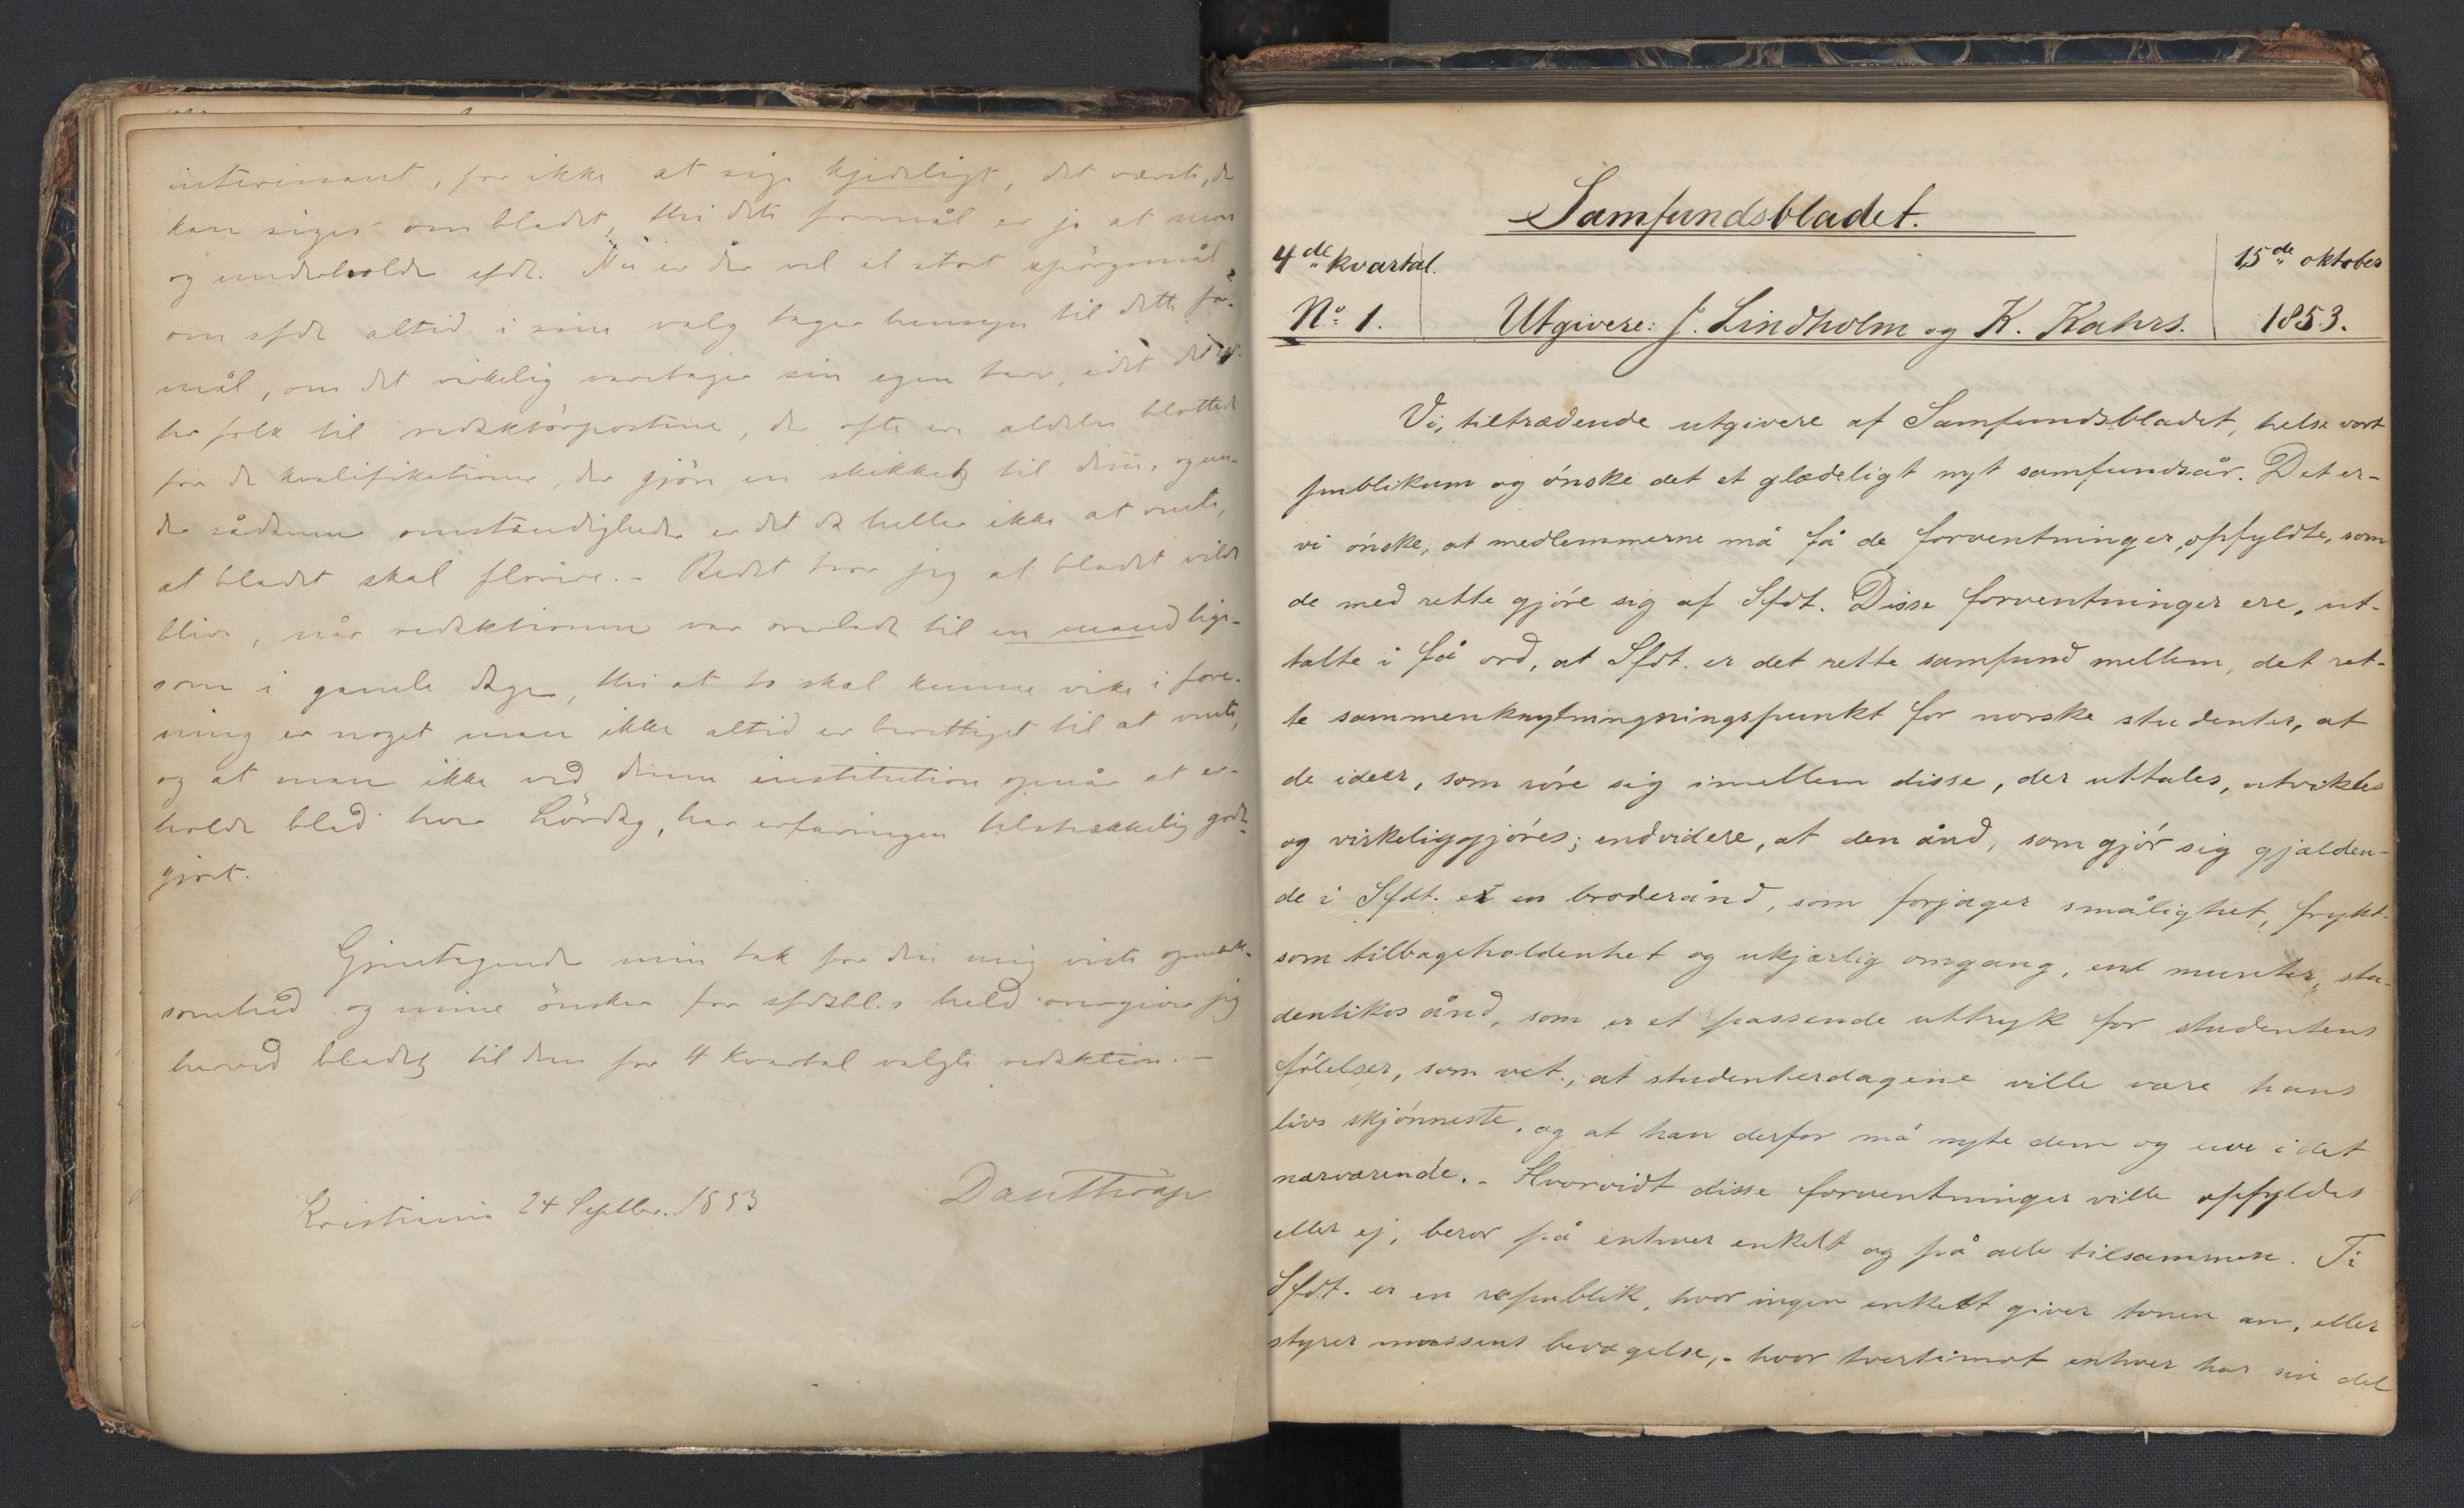 interessant, for ikke at sige kjedeligt, det værste, der
kan siges om bladet, thi dets formål er jo at more
og underholde sfdt. Nu er der vel et stort spörgsmål,
om sfdt altid i sine valg tager hensyn til dette for-
mål, om det virkelig varetager sin egen tarv, idet det
folk til redaktörposterne, der ofte ere aldeles blottede
for de kvalifikationer, der gjöre en skikket til den, og un-
der sådanne omstændigheder er det da heller ikke at vente,
at bladet skal florire. - Bedst tror jeg at bladet vilde
blive, når redaktionen var overladt til en mand lige-
som i gamle dage, thi at to skal kunne virke i fore-
ning er noget man ikke altid er berettiget til at vente,
og at man ikke ved denne institution opnår at er-
holde blad hver Lördag, har erfaringen tilstrækkelig godt-
gjort.
Gjentagende min tak for den mig viste opmærk-
somhed og mine önsker for sfdsbl.s held overgiver jeg
herved bladet til den for 4 kvartal valgte redaktion. -
Kristiania 24 Septbr. 1853
Samfundsbladet.
4de kvartal.
15de oktober
No. 1.
Utgivere: J. Lindholm og K. Kahrs.
1853.
Vi, tiltrædende utgivere af Samfundsbladet, helse vort
publikum og ónske det et glædeligt nyt samfundsår. Det er-
vi ónske, at medlemmerne må få de forventninger opfyldte, som
de med rette gjóre sig af Sfdt. Disse forventninger ere, ut-
talte i få ord, at Sfdt. er det rette samfund mellem, det ret-
te sammenknytningningspunkt for norske studenter, at
de ideer, som róre sig imellem disse, der uttales, utvikles
og virkeliggjóres; endvidere, at den ånd, som gjór sig gjælden-
de i Sfdt. er en broderånd, som forjager smålighet, frykt-
som tilbageholdenhet og ukjærlig omgang, en munter, stu-
dentikos ånd, som er et passende uttryk for studentens
fólelser, som vet, at studenterdagene ville være hans
livs skjónneste, og at han derfor må nyte dem og leve i det
nærværende. - Hvorvidt disse forventninger ville opfyldes
eller ej, beror på enhver enkelt og på alle tilsammen. Ti
Sfdt. er en republik, hvor ingen enkelt giver tonen an, eller
styrer massens bevægelse, - hvor tvertimot enhver har sin del